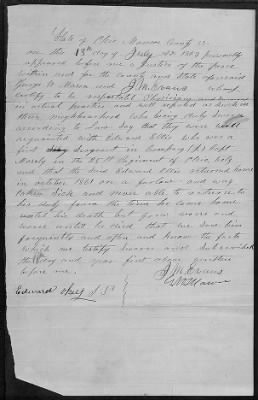 State of Ohio, Monroe County ss
on the 13th day of July AD 1863 personally
appeared before me a Justice of the peace
within and for the county and State aforesaid
George W. Mason and J M Evans whom I
certify to be respectable Physicians and
in actual practice and well reputed as such in
their neighbourhood who being duly sworn
according to law say that they were well
acquainted with Edward Okey who was a
first Sergeant in Company Capt
Moredy in the 25th Regiment of Ohio vols
and that the said Edward Okey returned home
in october 1861 on a furlow and was
taken Sick and never able to return to
his duty from the time he came home
until his death but grew worse and
worse until he died that we saw him
frequently and often and know the facts
which we testify Sworn and Subscribed
the day and year first above written
before me.
J. M. Evans
Edward Okey